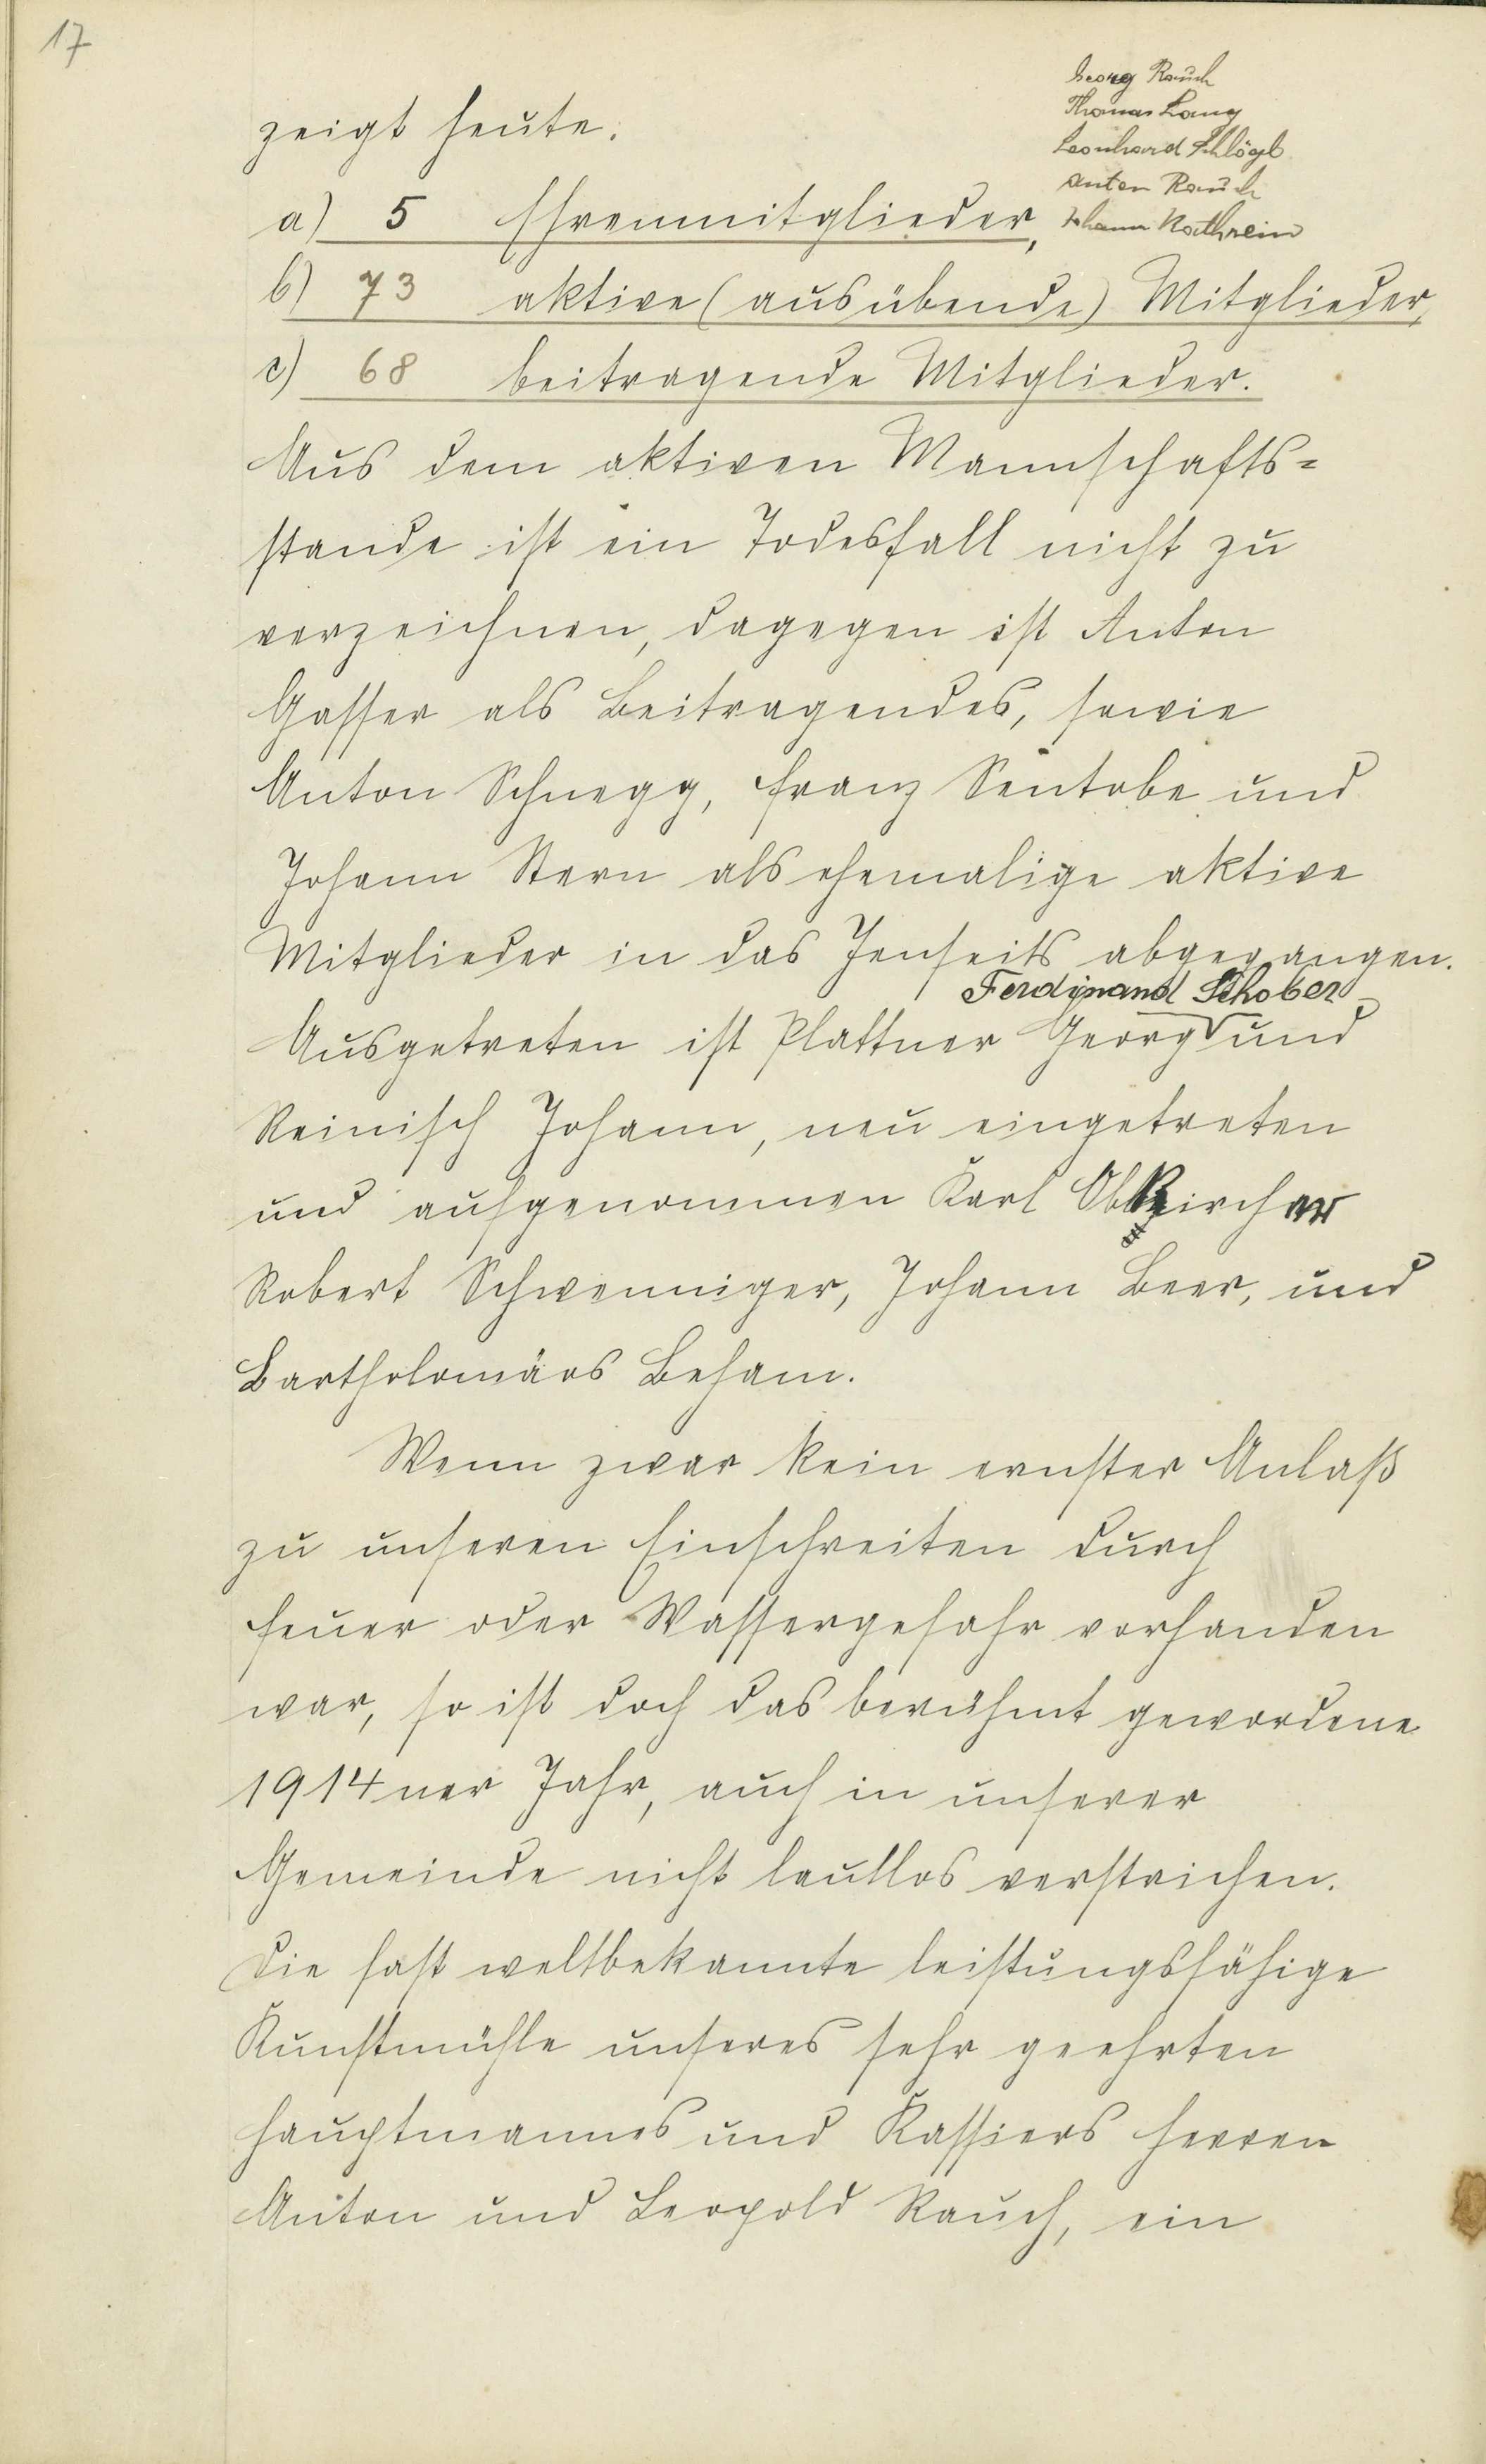 17
zeigt heute:
Georg Rauch
Thomas Lang
Leonhard Schlögl
Anton Rauch
Johann Kathrein
a) 5 Ehrenmitglieder,
b) 73 aktive (ausübende) Mitglieder,
c) 68 beitragende Mitglieder.
Aus dem aktiven Mannschafts=
stande ist ein Todesfall nicht zu
verzeichnen, dagegen ist Anton
Gasser als Beitragendes, sowie
Anton Schnegg, Franz Sentobe und
Johann Stern als ehemalige aktive
Mitglieder in das Jenseits abgegangen.
Ferdinand Schober
Ausgetreten ist Plattner Georg und
Reinisch Johann, neu eingetreten
und aufgenommen Karl Obkircher
Robert Schwenniger, Johann Beer, und
Bartholomäos Beham.
Wenn zwar kein ernster Anlaß
zu unseren Einschreiten durch
Feuer oder Wassergefahr vorhanden
war, so ist doch das berühmt gewordene
1914ner Jahr, auch in unserer
Gemeinde nicht lautlos verstrichen.
Die fast weltbekannte leistungsfähige
Kunstmühle unseres sehr geehrten
Hauptmannes und Kassiers Herren
Anton und Leopold Rauch, ein